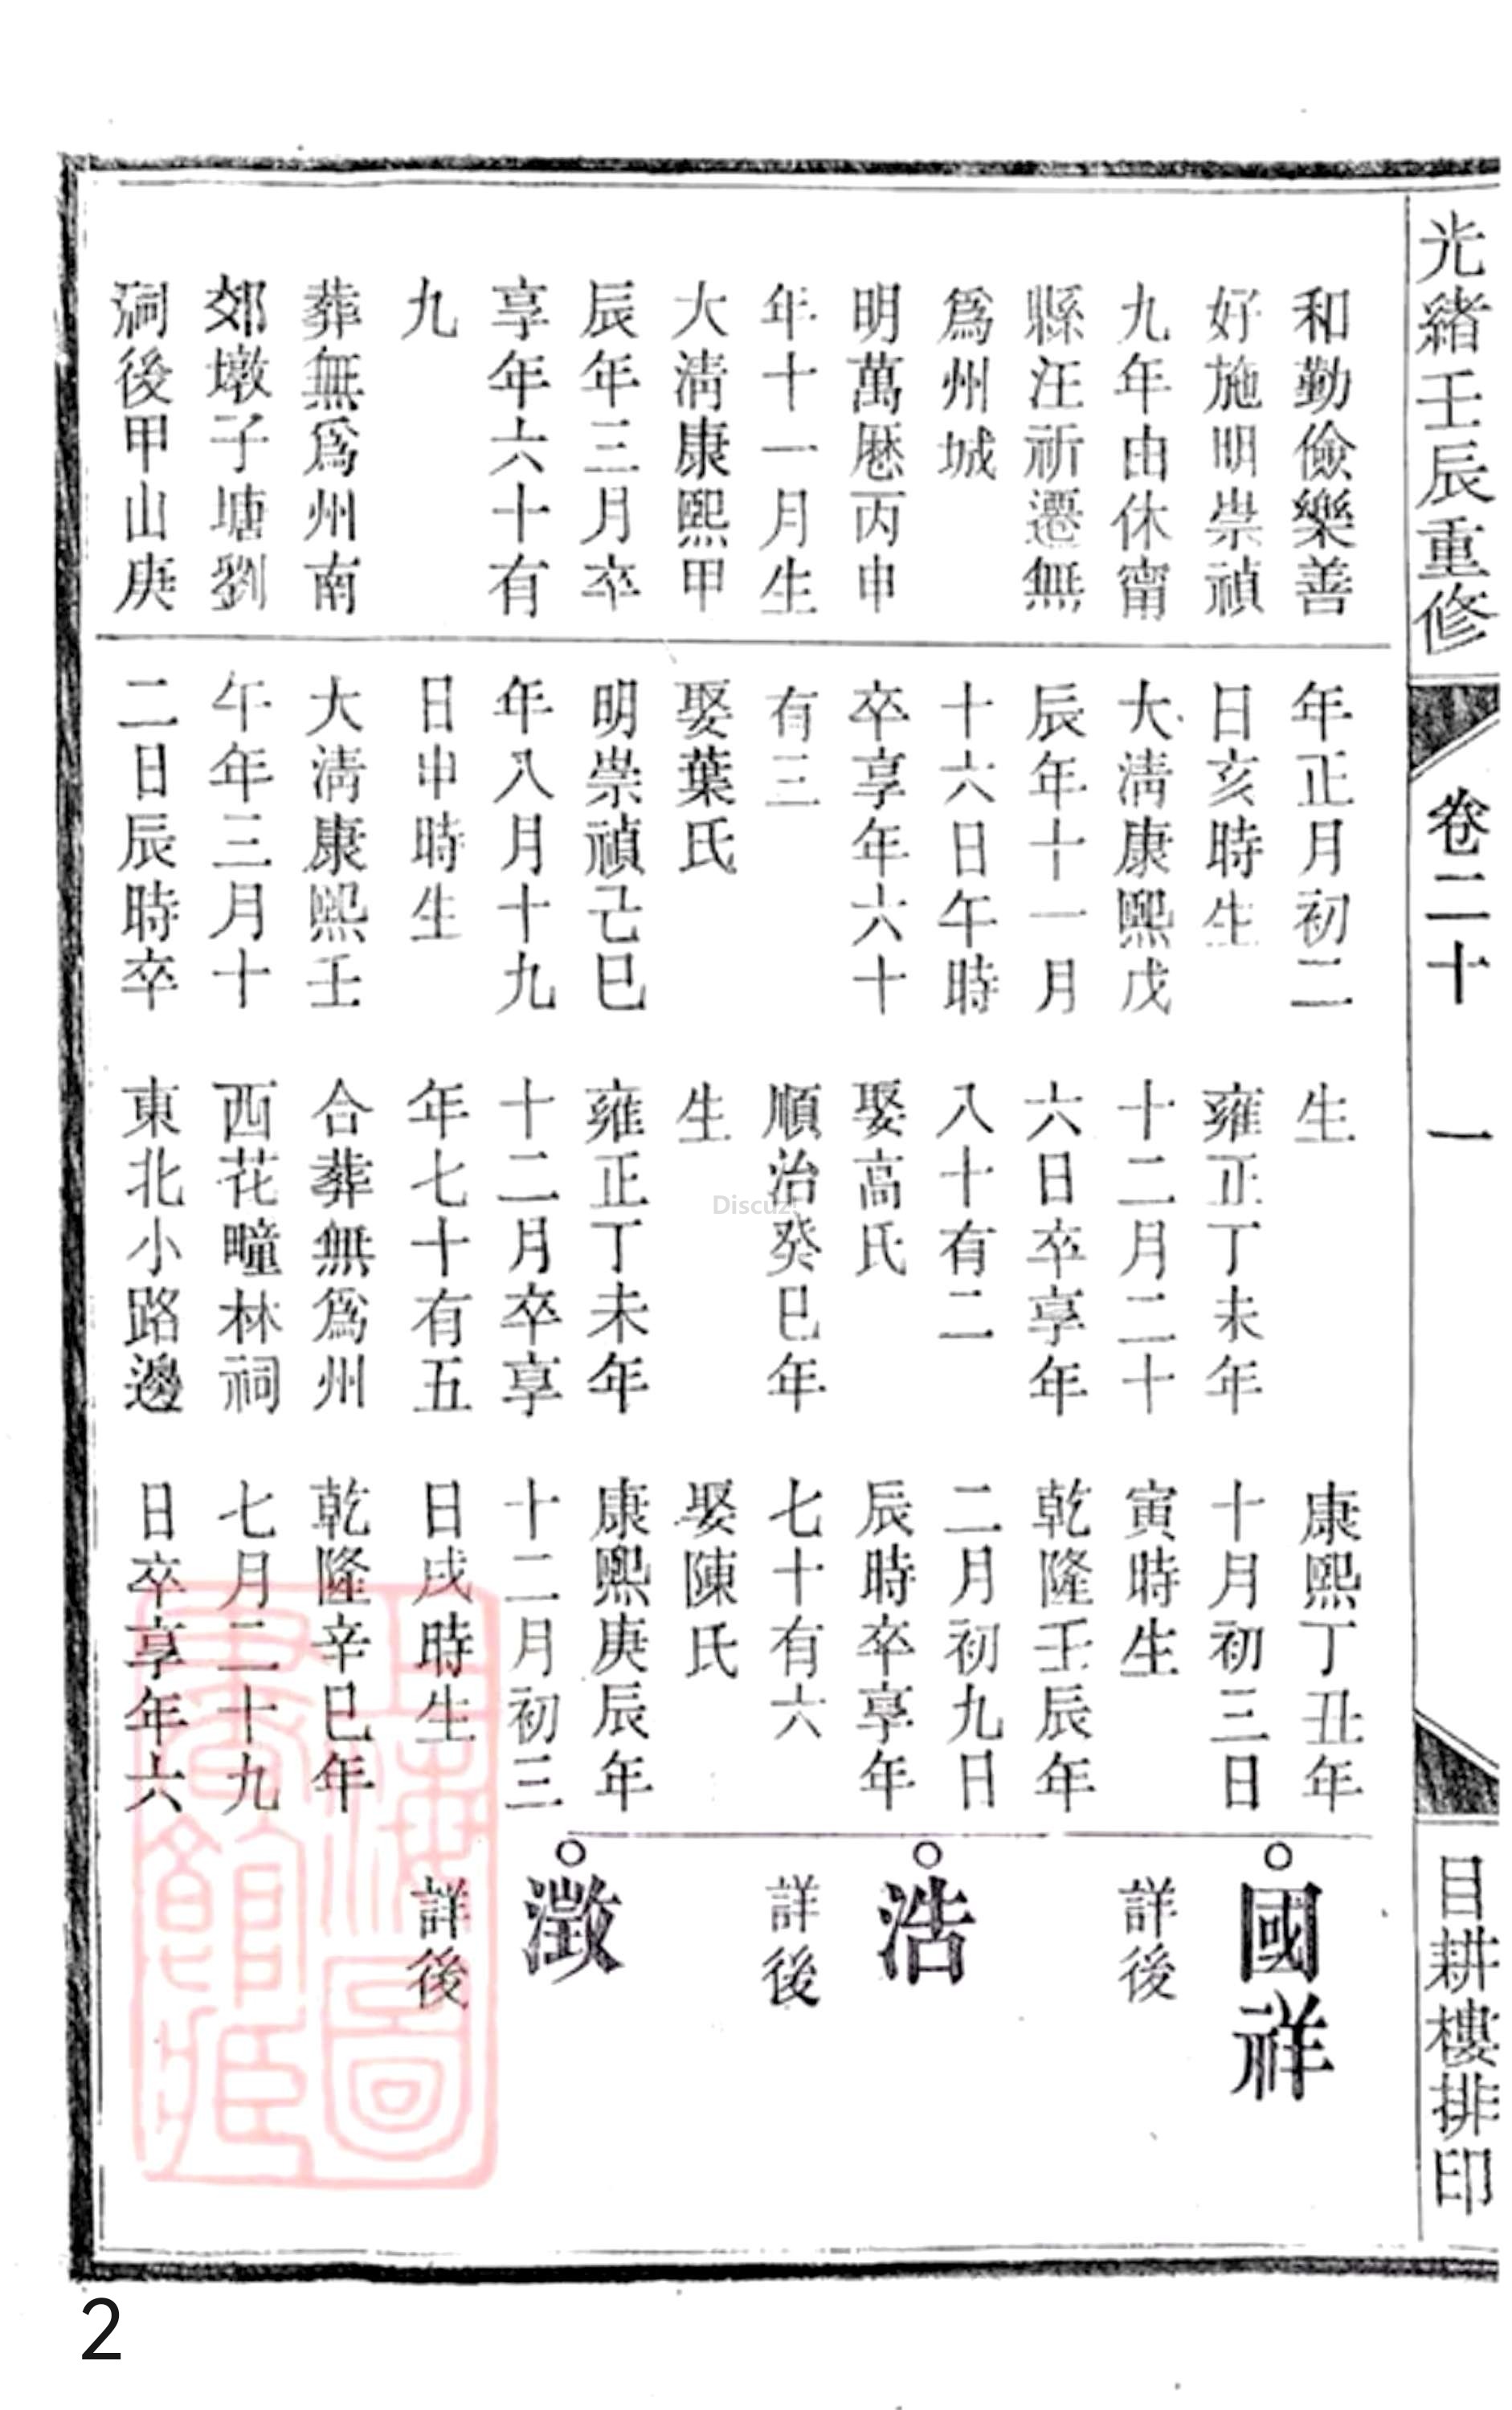 光緒壬辰重修
卷二十
一
目耕樓排印
和勤儉樂善
好施明崇禎
九年由休甯
縣汪祈遷無
爲州城
明萬厯丙申
年十一月生
大清康熙甲
辰年三月卒
享年六十有
九
葬無爲州南
郊墩子塘劉
祠後甲山庚
年正月初二
日亥時生
大清康熙戊
辰年十一月
十六日午時
卒享年六十
有三
娶葉氏
明崇禎己巳
年八月十九
日申時生
大清康熙壬
午年三月十
二日辰時卒
生
雍正丁未年
十二月二十
六日卒享年
八十有二
娶高氏
順治癸巳年
生
雍正丁未年
十二月卒享
年七十有五
合葬無爲州
西花疃林祠
東北小路邊
康熙丁丑年
十月初三日
寅時生
乾隆壬辰年
二月初九日
辰時卒享年
七十有六
娶陳氏
康熙庚辰年
十二月初三
日戌時生
乾隆辛巳年
七月二十九
日卒享年六
國祥
詳後
浩
詳後
澂
詳後
上海圖
書館藏
Discuz!
2